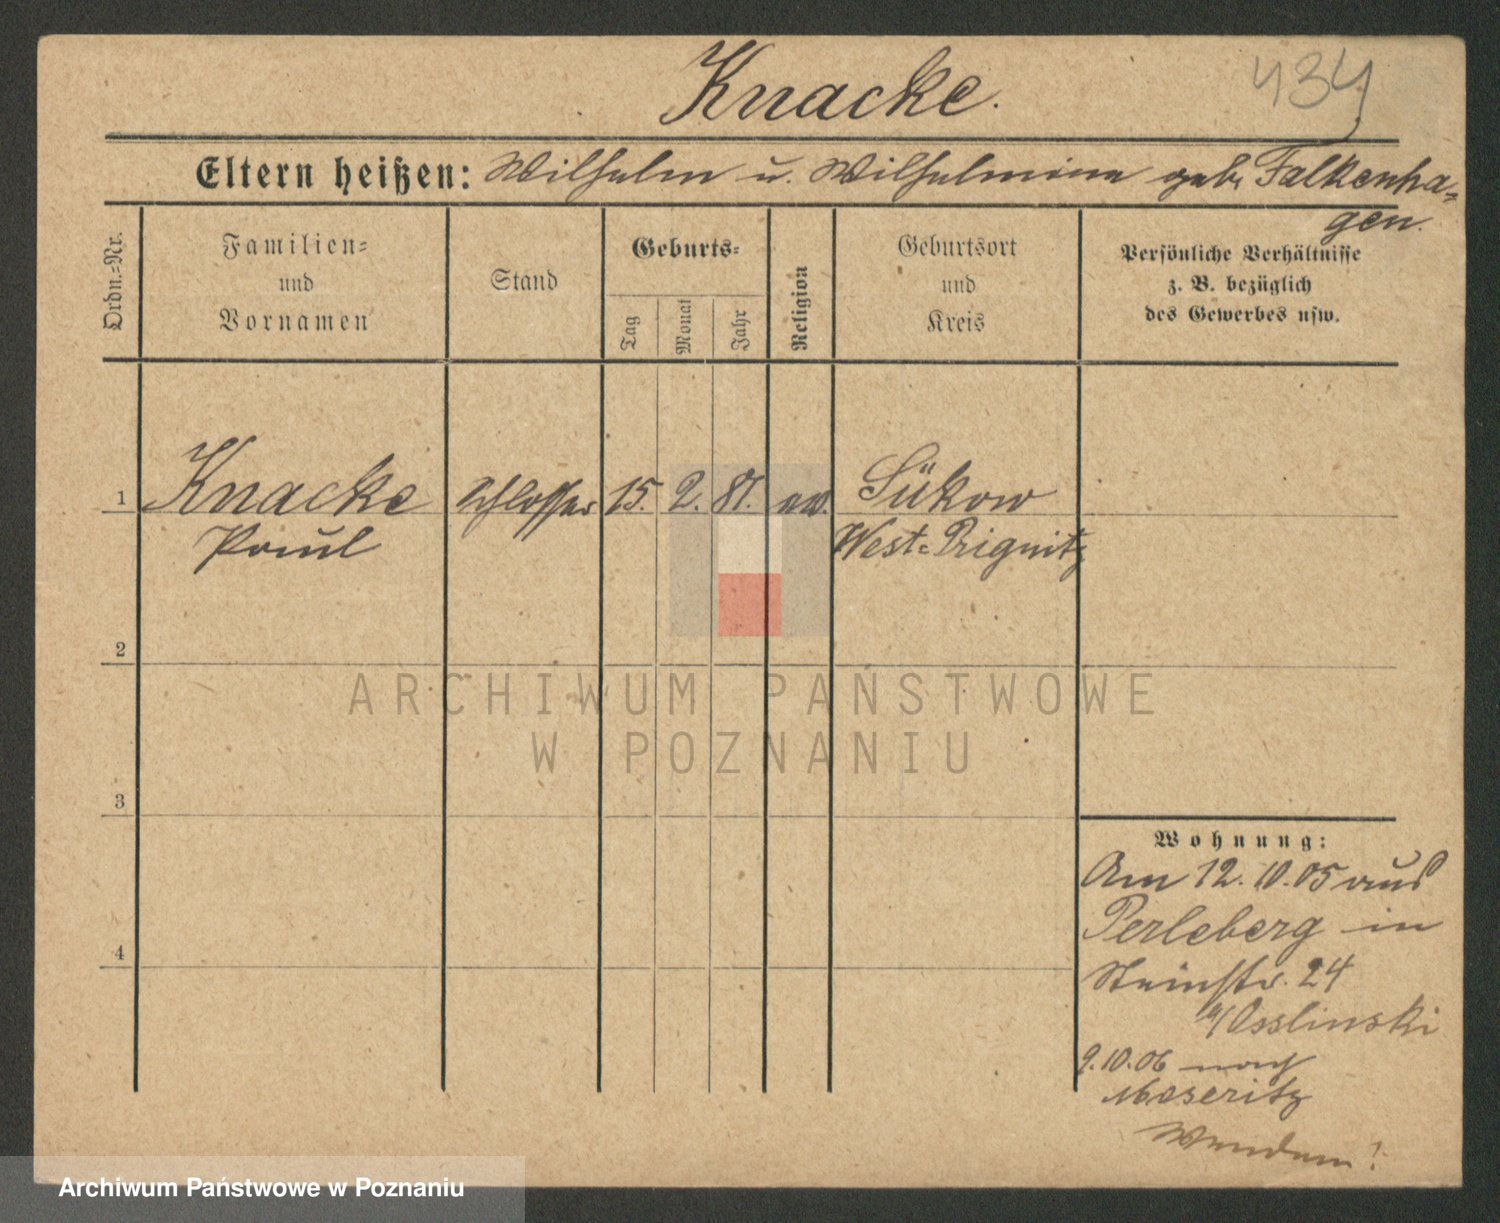 Knacke.
434
Eltern heißen: Wilhelm u. Wilhelmine geb. Falkenha=
gen.
Ordn.=Nr.
Familien=
und
Vornamen
Stand
Geburts=
Tag
Monat
Jahr
Religion
Geburtsort
und
Kreis
Persönliche Verhältnisse
z. B. bezüglich
des Gewerbes usw.
1
Knacke
Paul
Schlosser
15.
2.
81.
ev.
Sükow
West=Prignitz
2
3
4
Wohnung:
Am 12.10.05 aus
Perleberg in
Steinstr. 24
b/Osslinski
9.10.06 nach
Meseritz
ARCHIWUM PAŃSTWOWE
W POZNANIU
Archiwum Państwowe w Poznaniu